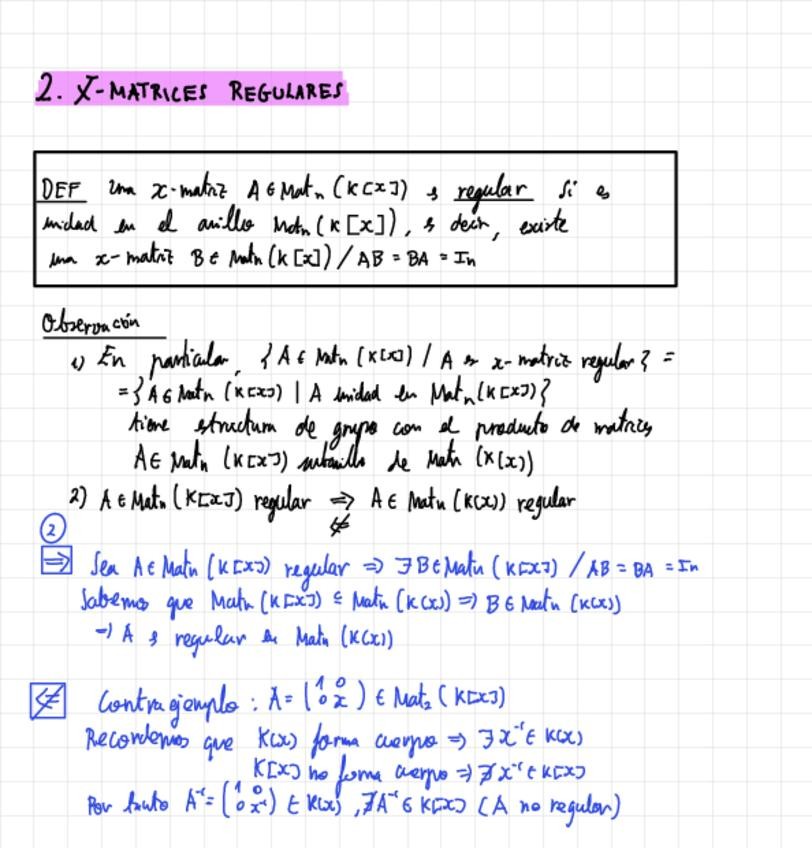 2. X-MATRICES REGULARES
DEF una x-matriz A ∈ Matn (K[x]) es regular si es
unidad en el anillo Matn (K[x]), es decir, existe
una x-matriz B ∈ Matn (K[x]) / AB = BA = In
Observación
1) En particular, { A ∈ Matn (K[x]) / A es x-matriz regular } =
= { A ∈ Matn (K[x]) | A unidad en Matn (K[x]) }
tiene estructura de grupo con el producto de matrices
A ∈ Matn (K[x]) subanillo de Matn (K(x))
2) A ∈ Matn (K[x]) regular ⇒ A ∈ Matn (K(x)) regular
⇍
2
⇒ Sea A ∈ Matn (K[x]) regular ⇒ ∃ B ∈ Matn (K[x]) / AB = BA = In
Sabemos que Matn (K[x]) ⊆ Matn (K(x)) ⇒ B ∈ Matn (K(x))
⇒ A es regular en Matn (K(x))
⇍ Contraejemplo : A = (1 0 0 x) ∈ Mat2 (K[x])
Recordemos que K(x) forma cuerpo ⇒ ∃ x⁻¹ ∈ K(x)
K[x] no forma cuerpo ⇒ ∄ x⁻¹ ∈ K[x]
Por tanto A⁻¹ = (1 0 0 x⁻¹) ∈ K(x) , ∄ A⁻¹ ∈ K[x] (A no regular)